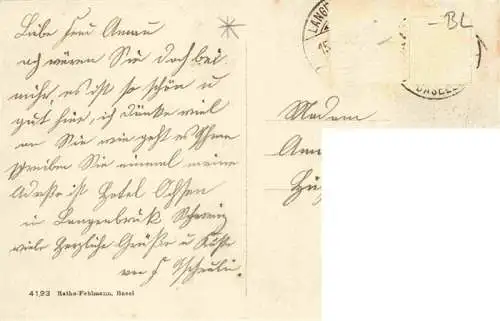 Liebe Frau Ammu
ach wären Sie doch bei
mihr, es ist so schön u
gut hier, ich dänke viel
an Sie wie geht es Ihnen
schreiben Sie einmal meine
Adrеße ist Hotel Ochsen
in Langenbruk Schweiz
viele Herzliche Grüße u Küße
von
4193 Rathe-Fehlmann, Basel
LANGE
- BL
BASEL
Madam